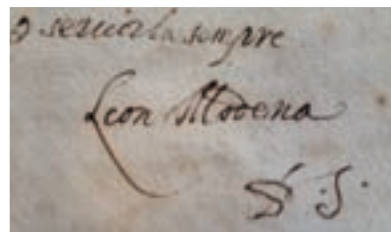 servirla sempre
Leon Modena
S.